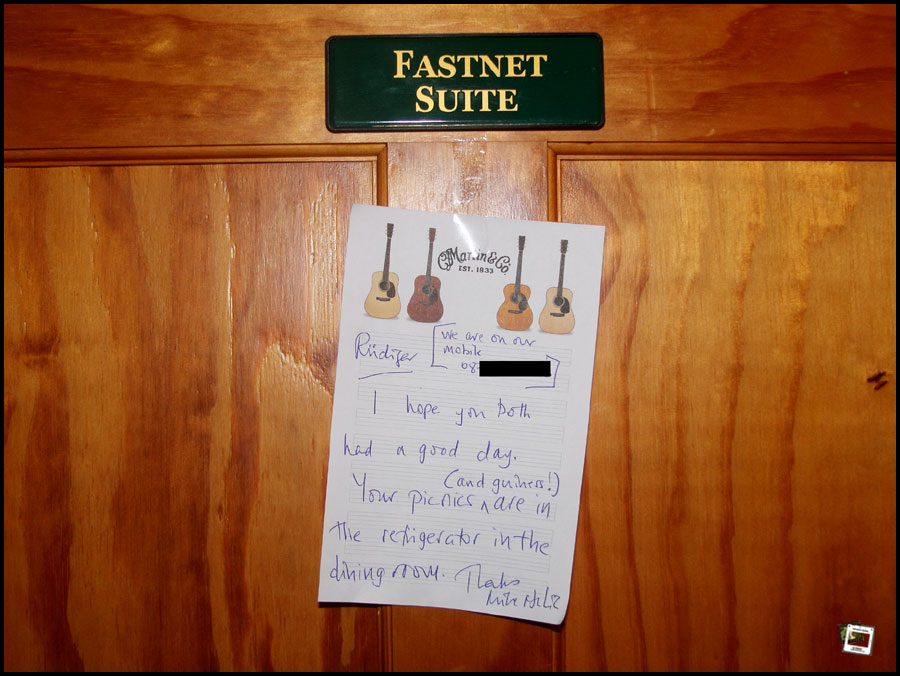 FASTNET
SUITE
CF Martin & Co.
EST. 1833
Rüdiger
[we are on our
mobile
08
]
I hope you both
had a good day.
(and guiness!)
Your picnics ^ are in
the refrigerator in the
dining room. Thanks
Mike & Liz